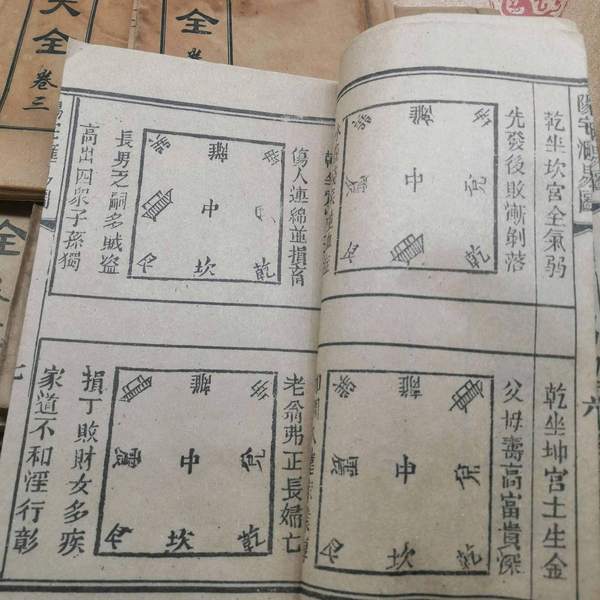 乾坐坎宮全氣弱
先發後敗漸剝落
離
中
兌
乾
乾坐坤宮土生金
父母壽高富貴深
離
震
中
兌
坎
乾
六
傷人連綿並損畜
離
中
坎
乾
長男乏嗣多賊盜
高出四衆子孫獨
老翁弗正長婦亡
離
震
中
兌
坎
乾
損丁敗財女多疾
家道不和淫行彰
七
全
全
卷三
全